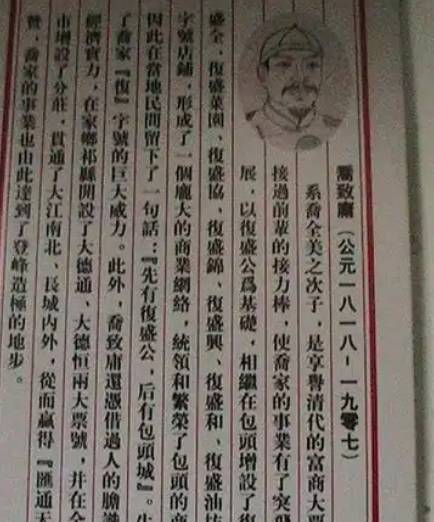 喬致庸（公元一八一八－一九零七）
系喬全美之次子，是享譽清代的富商大
接過前輩的接力棒，使喬家的事業有了突飛
展，以復盛公爲基礎，相繼在包頭增設了復
盛全、復盛菜園、復盛協、復盛錦、復盛興、復盛和、復盛油坊
字號店鋪，形成了一個龐大的商業網絡，統領和繁榮了包頭的商
因此在當地民間留下了一句話：『先有復盛公，后有包頭城』。
了喬家『復』字號的巨大威力。此外，喬致庸還憑借過人的膽識
經濟實力，在家鄉祁縣開設了大德通、大德恒兩大票號，并在全
市增設了分莊，貫通了大江南北、長城内外，從而贏得『匯通天
譽，喬家的事業也由此達到了登峰造極的地步。